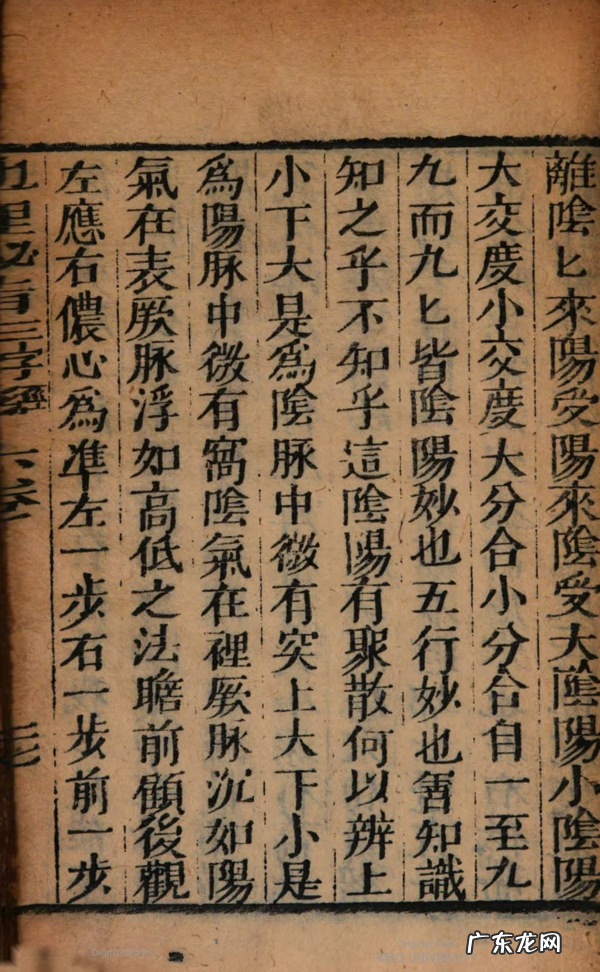 離陰匕來陽受陽來陰受大陰陽小陰陽
大交度小交度大分合小分合自一至九
九而九匕皆陰陽妙也五行妙也害知識
知之乎不知乎這陰陽有聚散何以辨上
小下大是為陰脉中微有突上大下小是
為陽脉中微有窩陰氣在裡厥脉沉如陽
氣在表厥脉浮如高低之法瞻前顧後觀
左應右儂心為準左一步右一步前一步
三字經 六卷
广东龙网